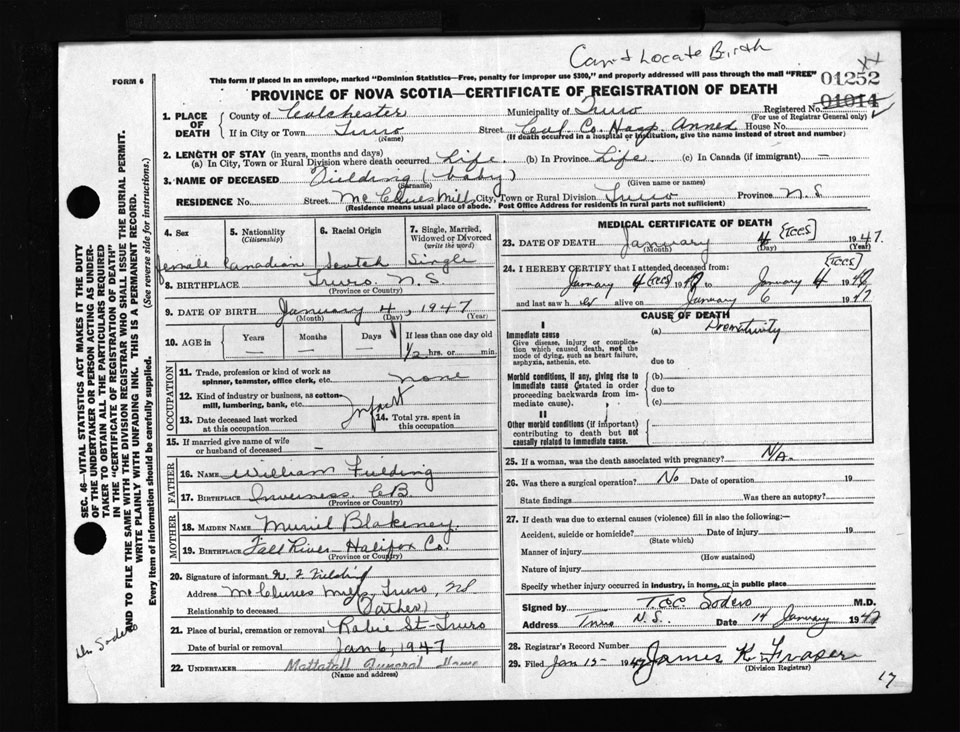 Can't Locate Birth
FORM 6
This form if placed in an envelope, marked "Dominion Statistics—Free, penalty for improper use $300," and properly addressed will pass through the mail "FREE"
01252
PROVINCE OF NOVA SCOTIA—CERTIFICATE OF REGISTRATION OF DEATH
01014
1. PLACE OF DEATH
County of Colchester Municipality of Truro Registered No.
(For use of Registrar General only)
If in City or Town Truro Street Col. Co. Hosp. Annex House No.
(Name) (If death occurred in a hospital or institution, give the name instead of street and number)
2. LENGTH OF STAY (in years, months and days)
(a) In City, Town or Rural Division where death occurred Life. (b) In Province Life. (c) In Canada (if immigrant) —
3. NAME OF DECEASED Fielding (baby)
(Surname) (Given name or names)
RESIDENCE No. Street McClures Mills City, Town or Rural Division Truro Province N.S
(Residence means usual place of abode. Post Office Address for residents in rural parts not sufficient)
4. Sex
5. Nationality
(Citizenship)
6. Racial Origin
7. Single, Married, Widowed or Divorced
(write the word)
female Canadian Scotch Single
8. BIRTHPLACE Truro N.S
(Province or Country)
9. DATE OF BIRTH January 4, 1947
(Month) (Day) (Year)
10. AGE in
Years
Months
Days
If less than one day old
— — — 1/2 hrs. or min.
OCCUPATION
11. Trade, profession or kind of work as spinner, teamster, office clerk, etc. none
12. Kind of industry or business, as cotton-mill, lumbering, bank, etc.
Infant
13. Date deceased last worked at this occupation
14. Total yrs. spent in this occupation
15. If married give name of wife or husband of deceased —
FATHER
16. NAME William Fielding
17. BIRTHPLACE Inverness C.B.
(Province or Country)
MOTHER
18. MAIDEN NAME Muriel Blakeney
19. BIRTHPLACE Fall River Halifax Co.
(Province or Country)
20. Signature of informant W. F. Fielding
Address McClures Mills Truro, NS
Relationship to deceased (Father)
21. Place of burial, cremation or removal Robie St - Truro
Date of burial or removal Jan 6, 1947
22. UNDERTAKER Mattatall Funeral Home
(Name and address)
MEDICAL CERTIFICATE OF DEATH
23. DATE OF DEATH January 4 {TCCS} 1947.
(Month) (Day) (Year)
24. I HEREBY CERTIFY that I attended deceased from:
{TCCS}
January 4 {TCCS} 1947 to January 4 1947
and last saw her alive on January 6 1947
CAUSE OF DEATH
I
Immediate cause
(a) Prematurity
Give disease, injury or complication which caused death, not the mode of dying, such as heart failure, asphyxia, asthenia, etc.
due to
Morbid conditions, if any, giving rise to immediate cause (stated in order proceeding backwards from immediate cause).
(b)
due to
(c)
II
Other morbid conditions (if important) contributing to death but not causally related to immediate cause.
25. If a woman, was the death associated with pregnancy? N/A.
26. Was there a surgical operation? No Date of operation 19
State findings Was there an autopsy?
27. If death was due to external causes (violence) fill is also the following:—
Accident, suicide or homicide? Date of injury 19
(State which)
Manner of injury
(How sustained)
Nature of injury
Specify whether injury occurred in industry, in home, or in public place
Signed by T.C.C. Sodero M.D.
Address Truro N.S. Date 14 January 1947
28. Registrar's Record Number
29. Filed Jan 15 - 1947 James K. Fraser
(Division Registrar)
17
SEC. 46- VITAL STATISTICS ACT MAKES IT THE DUTY OF THE UNDERTAKER OR PERSON ACTING AS UNDERTAKER TO OBTAIN ALL THE PARTICULARS REQUIRED IN THE "CERTIFICATE OF REGISTRATION OF DEATH" AND TO FILE THE SAME WITH THE DIVISION REGISTRAR WHO SHALL ISSUE THE BURIAL PERMIT.
WRITE PLAINLY WITH UNFADING INK. THIS IS A PERMANENT RECORD.
Every item of information should be carefully supplied. (See reverse side for instructions.)
Dr. Sodero